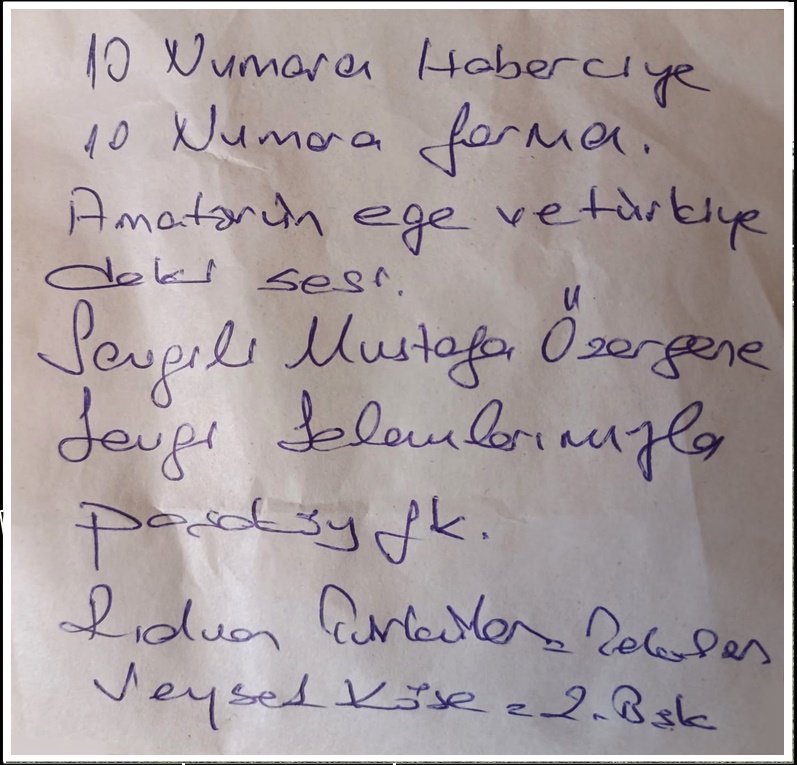 10 Numara Haberciye
10 Numara forma.
Amatörün ege ve türkiye
deki sesi.
Sevgili Mustafa Özergene
Sevgi Selamlarımızla
Paşaköy fk.
Rıdvan
Veysel Köse = 2. Bşk